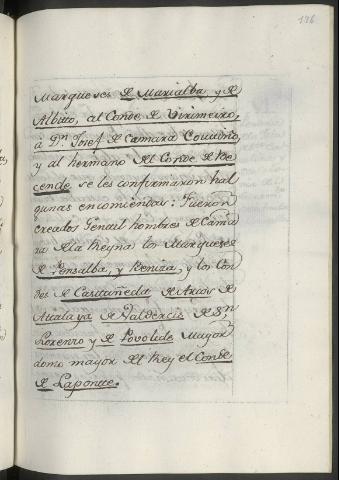 176
Marqueses de Marialba y de
Albito, al Conde de Vimieiro,
a Dn. Josef de Camara Coutiño,
y al hermano del Conde de Re
cende se les confirmaron hal
gunas encomiendas: Fueron
creados Gentil hombres de Cama
ra de la Reyna los Marqueses
de Penalba, y Reniza, y los Con
des de Castañeda de Arcos de
Atalaya de Valdereis de Sn.
Lorenzo y de Povolide Mayor
domo mayor del Rey el Conde
de Laponte.